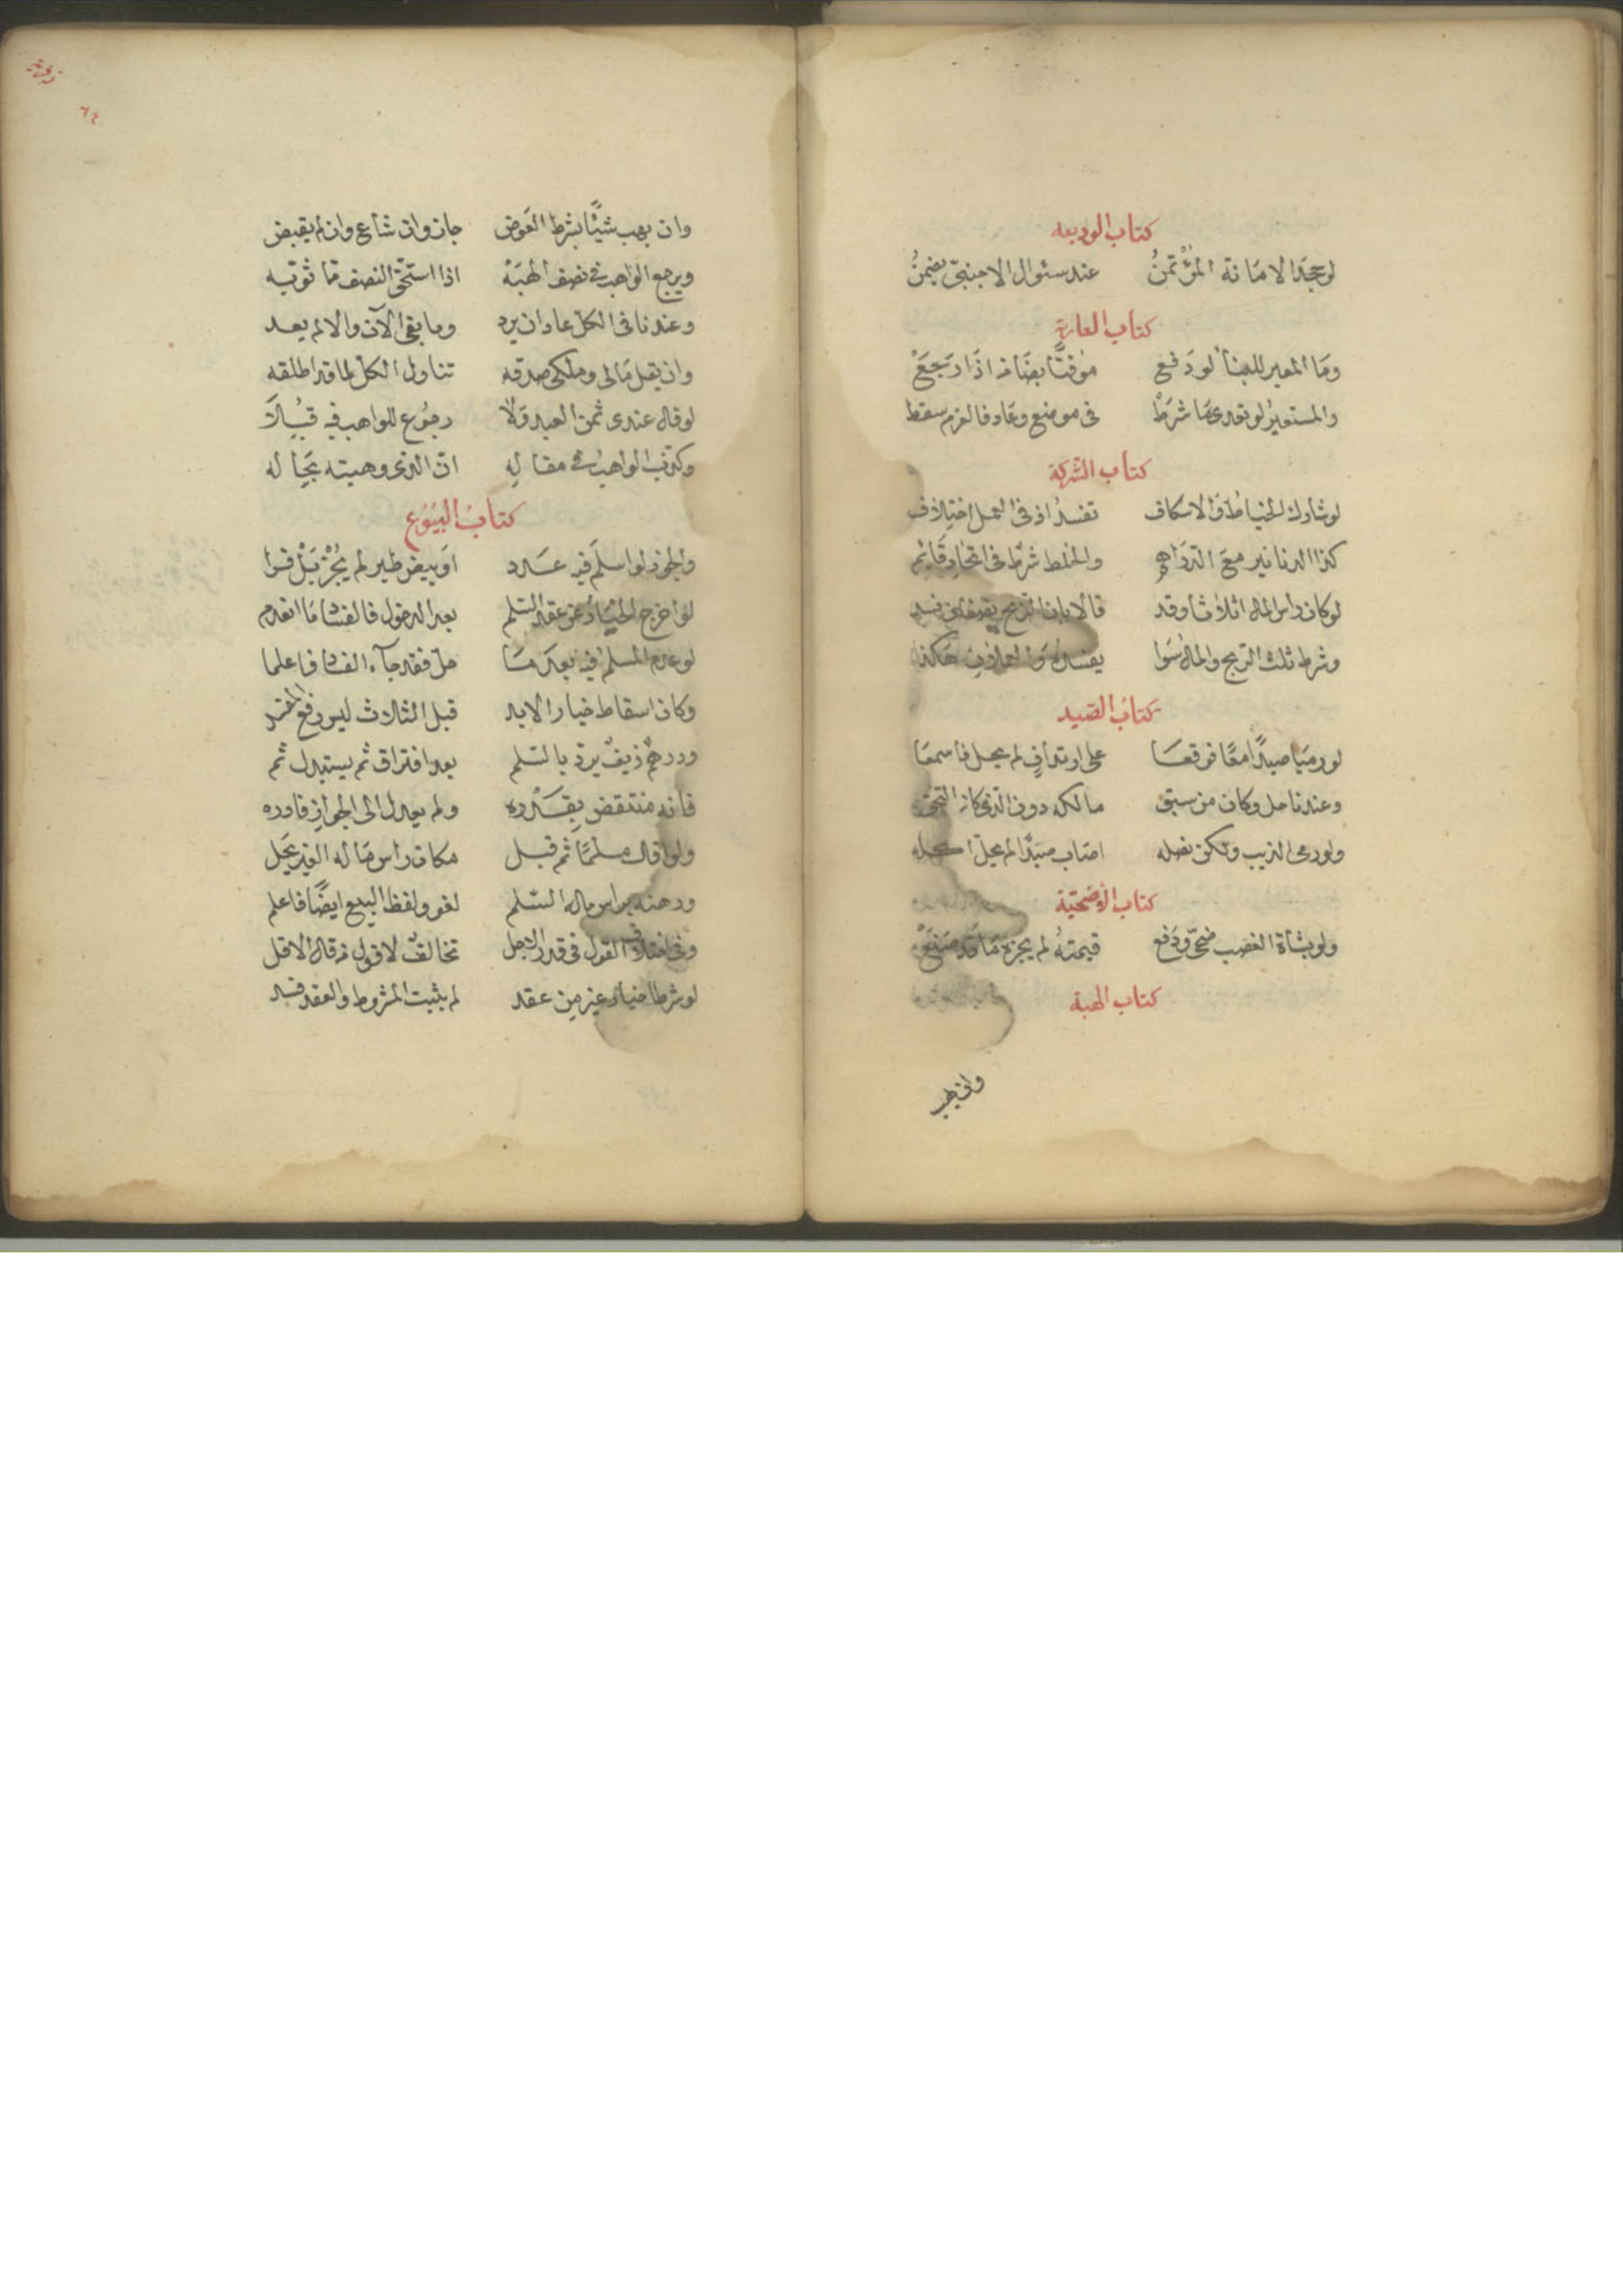 كتاب الوديعه
لو جحد الامانة المؤتمنُ عند سئوال الاجنبى يضمنُ
كتاب العارية
وما المعير للبنا لو دفع موقتًا بضامن اذا رجعْ
والمستعير لو تعدى ما شرطْ فى موضع وعاد فالغرم سقط
كتاب الشركة
لو شارك الخياط والاسكاف تفسد اذ فى العمل اختلاف
كذا الدنانير مع الدراهم والخلط شرط فى اتحاد قائم
لو كان راس المال اثلاثا وقد قالا بان الربح
وشرط ثلث الربح والمال سوا يفسد هكذا
كتاب الصيد
لو رميا صيدًا معًا فوقعا على لم يحل فاسمعا
وعندنا حل وكان من سبق مالكه دون الذى كان التحق
ولو رمى الذيب ولكن نصله اصاب صيدًا لم يحل اكله
كتاب الاضحية
ولو بشاة الغصب ضحى ودفع قيمته لم يجزه ما قد صنعْ
كتاب الهبة
وان يهب
٦٤
وان يهب شيئًا بشرط العوض جاز وان شاع وان لم يقبض
ويرجع الواهب فى نصف الهبه اذا استحق النصف مما ثوبه
وعندنا فى الكل عاد ان يرد وما بقى الآن والا لم يعد
وان يقل مالى وملكى صدقه تناول الكل لما قد اطلقه
لو قال عندى ثمن العبد ولا رجوع للواهب فيه قبلا
وكذب الواهب فى مقاله ان الذى وهبته بحاله
كتاب البيوع
والجوز لو اسلم فيه عدد او بيض طير لم يجز بل فسدا
لو اخرج الخيار عن عقد السلم بعد الدخول فالفساد ما انعدم
لو عدم المسلم فيه بعد ما حل فقد جآء الفساد فاعلما
وكان اسقاط خيار الابد قبل الثلاث ليس رفع المفسد
ودرهم زيف يرد بالسلم بعد افتراق ثم يستبدل ثم
فانه منتقض برده ولم يعد الى الجواز فادره
ولو اقال مسلمًا ثم قبل مكان راس ماله الغير يحل
ورهنه براس مال السلم لغو ولفظ البيع ايضًا فاعلم
وفى اختلاف القول فى قدر الاجل تخالف لا قول من قال الاقل
لو شرطا خيار غير من عقد لم يثبت المشروط والعقد فسد